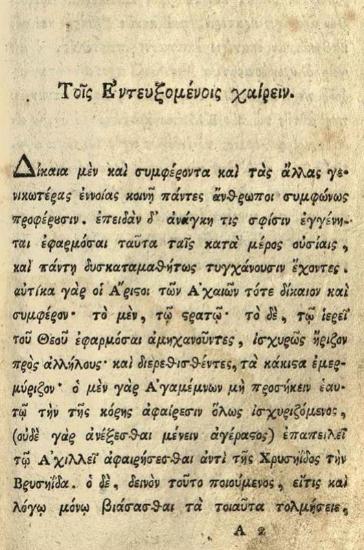 Τοῖς Ἐντευξομένοις χαίρειν.
Δίκαια μὲν καὶ συμφέροντα καὶ τὰς ἄλλας γε-
νικωτέρας ἐννοίας κοινῇ πάντες ἄνθρωποι συμφώνως
προφέρουσιν. ἐπειδὰν δ' ἀνάγκη τις σφίσιν ἐγγένη-
ται ἐφαρμόσαι ταῦτα ταῖς κατὰ μέρος οὐσίαις,
καὶ πάντη δυσκαταμαθήτως τυγχάνουσιν ἔχοντες.
αὐτίκα γὰρ οἱ Ἄριστοι τῶν Ἀχαιῶν τότε δίκαιον καὶ
συμφέρον· τὸ μὲν, τῷ στρατῷ· τὸ δὲ, τῷ ἱερεῖ
τοῦ Θεοῦ ἐφαρμόσαι ἀμηχανοῦντες, ἰσχυρῶς ἤριζον
πρὸς ἀλλήλους· καὶ διερεθισθέντες, τὰ κάκιστα ἐμερ-
μύριζον· ὁ μὲν γὰρ Ἀγαμέμνων μὴ προσήκειν ἑαυ-
τῷ τὴν τῆς κόρης ἀφαίρεσιν ὅλως ἰσχυριζόμενος,
(οὐδὲ γὰρ ἀνέξεσθαι μένειν ἀγέραστος) ἐπαπειλεῖ
τῷ Ἀχιλλεῖ ἀφαιρήσεσθαι ἀντὶ τῆς Χρυσηίδος τὴν
Βρυσηίδα. ὁ δὲ, δεινὸν τοῦτο ποιούμενος, εἴτις καὶ
λόγῳ μόνῳ βιάσασθαι τὰ τοιαῦτα τολμήσειε,
A 2